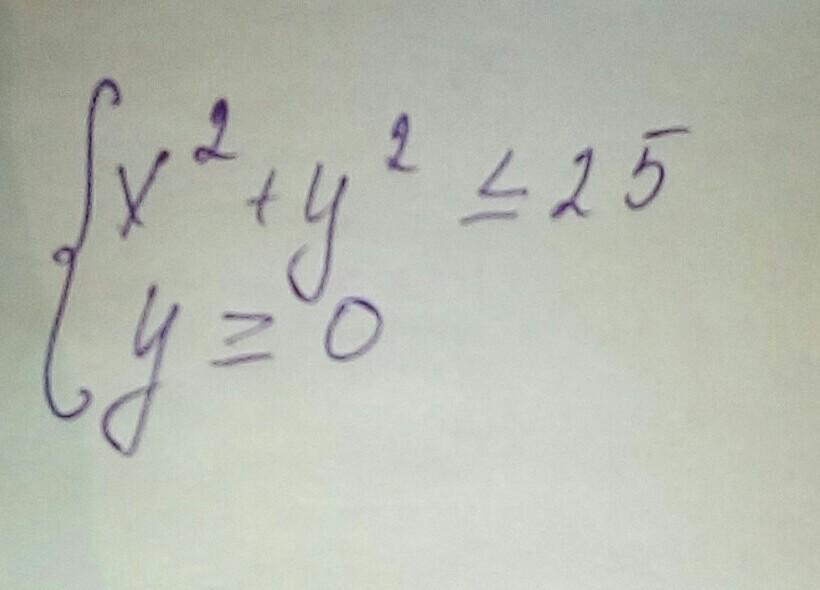 x² + y² ≤ 25
y ≥ 0